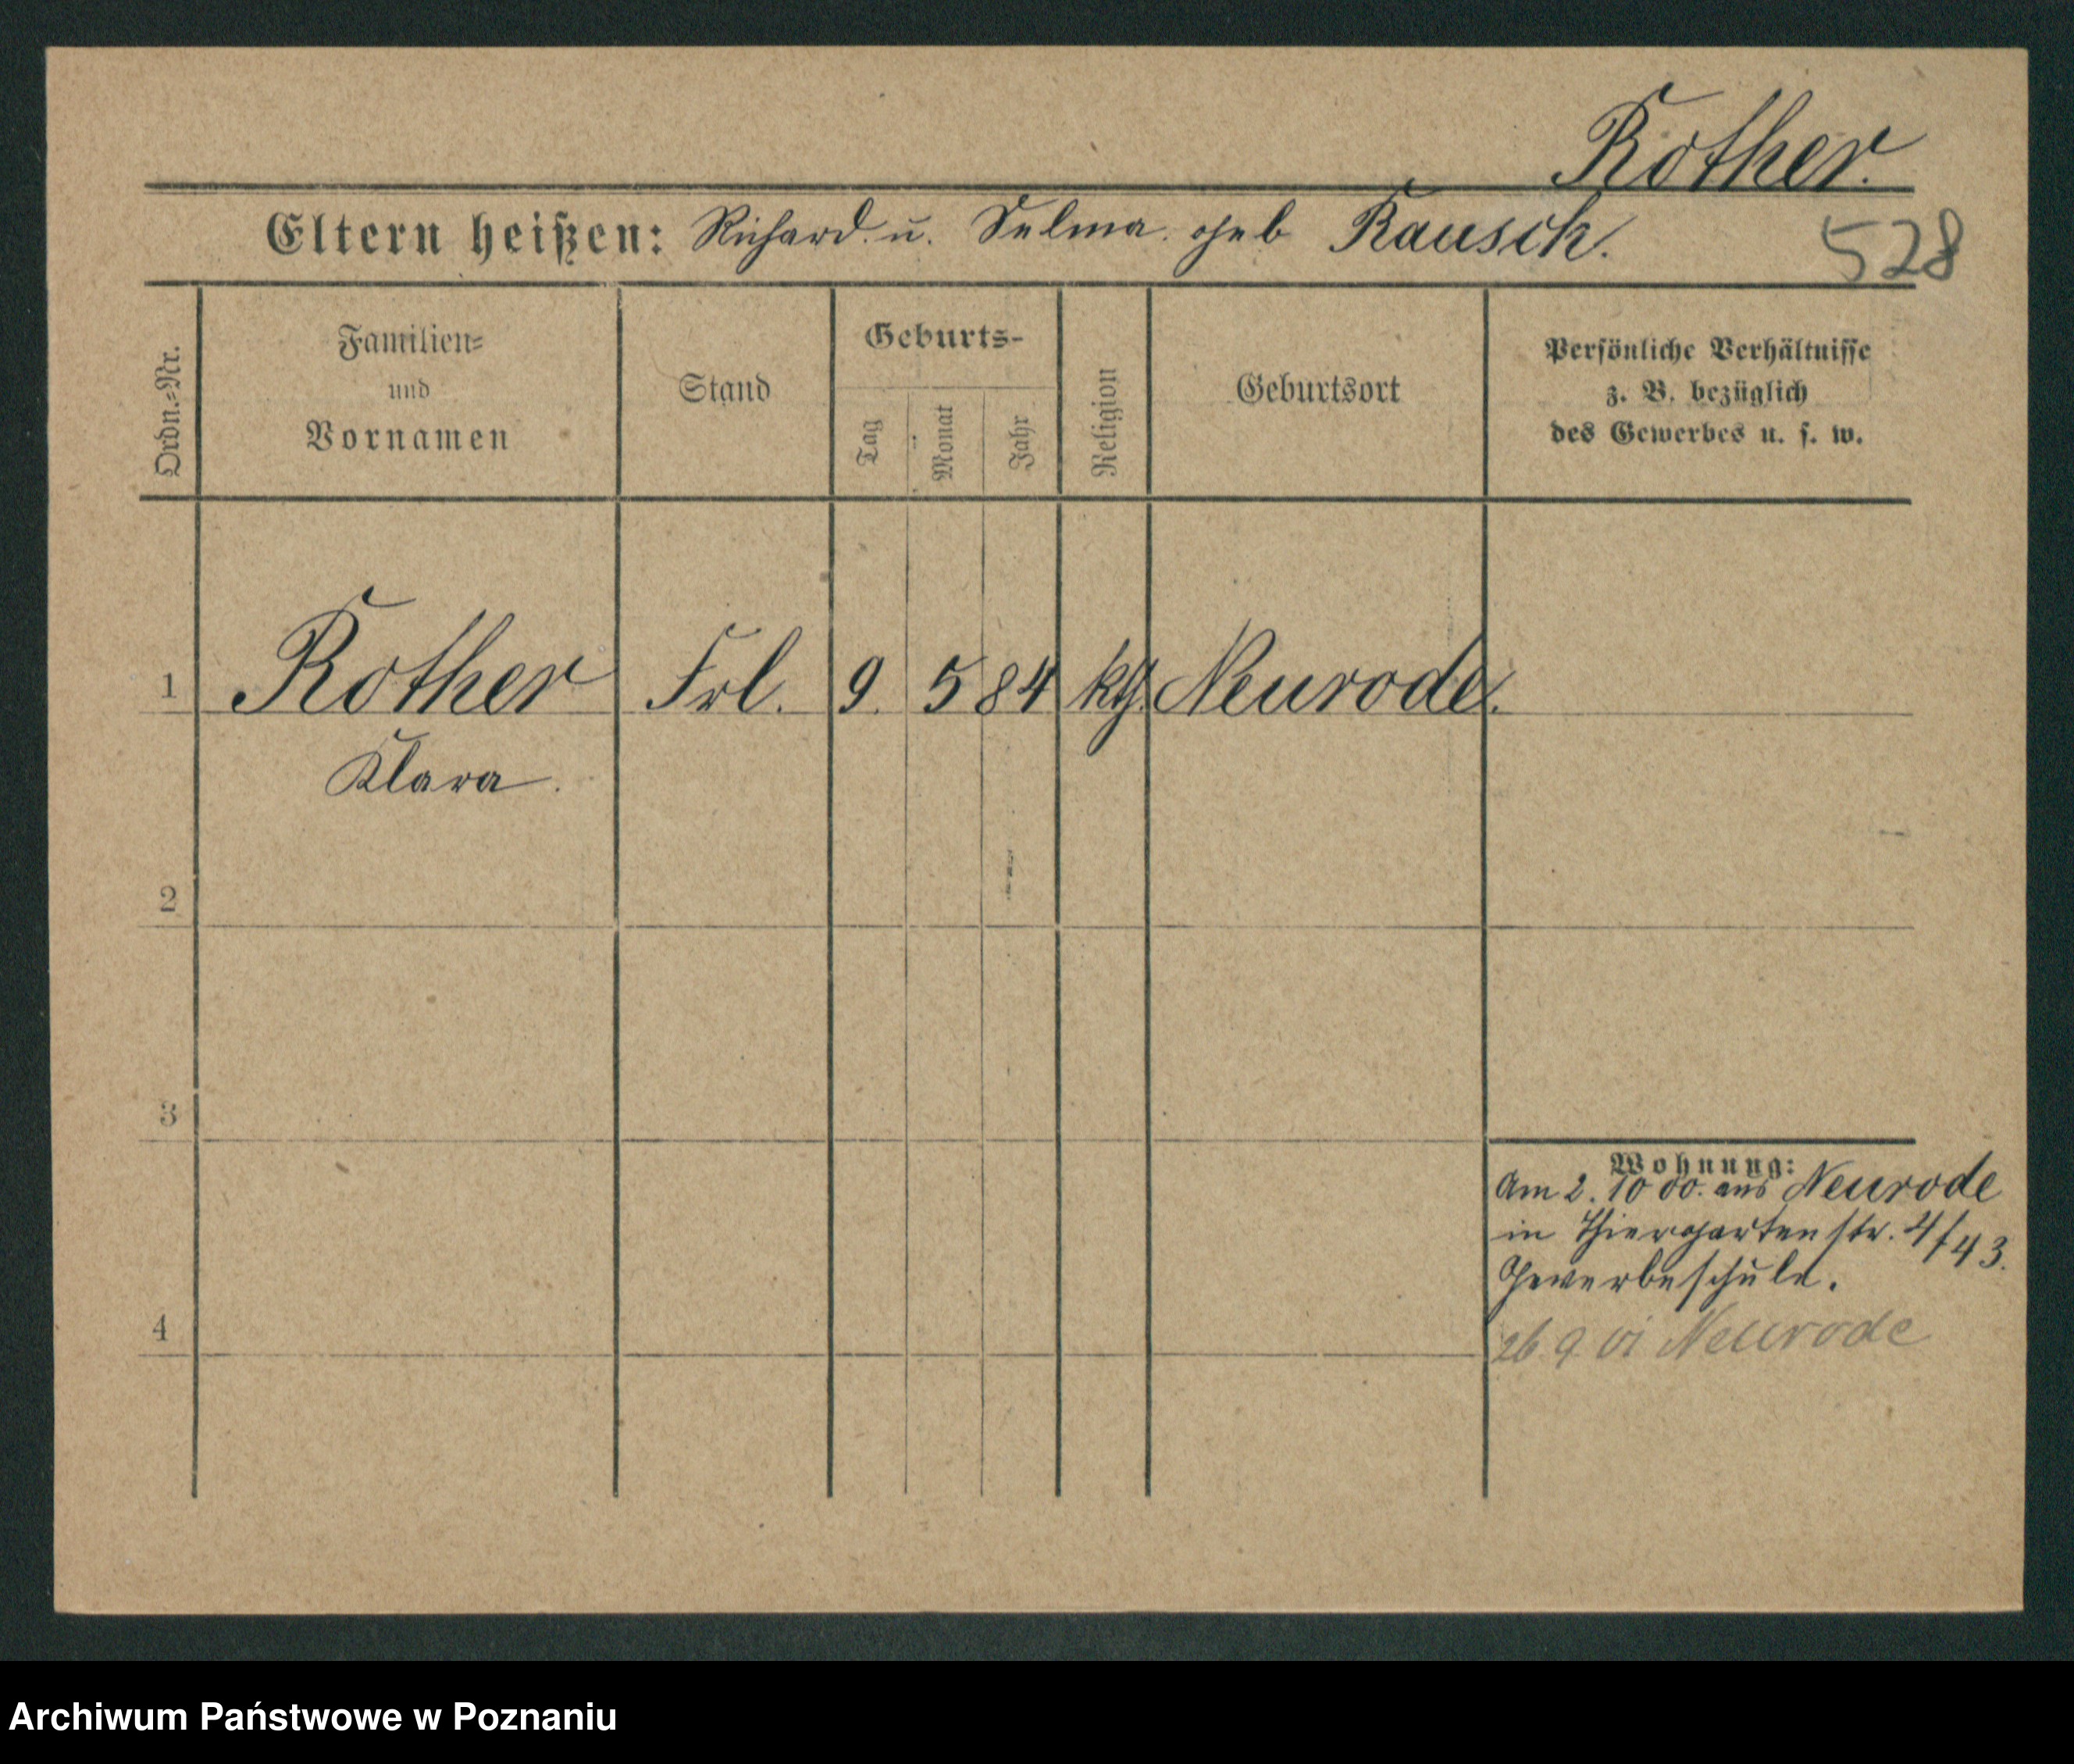 Rother.
Eltern heißen: Richard u. Selma geb Rausch.
528
Ordn.-Nr.
Familien-
und
Vornamen
Stand
Geburts-
Tag
Monat
Jahr
Religion
Geburtsort
Persönliche Verhältnisse
z. B. bezüglich
des Gewerbes u. s. w.
1 Rother Frl. 9. 5 84 kth. Neurode.
Klara.
2
3
Wohnung:
Am 2. 10 00. aus Neurode
in Thiergartenstr. 4/43.
Gewerbeschule.
4
26 9 01 Neurode
Archiwum Państwowe w Poznaniu